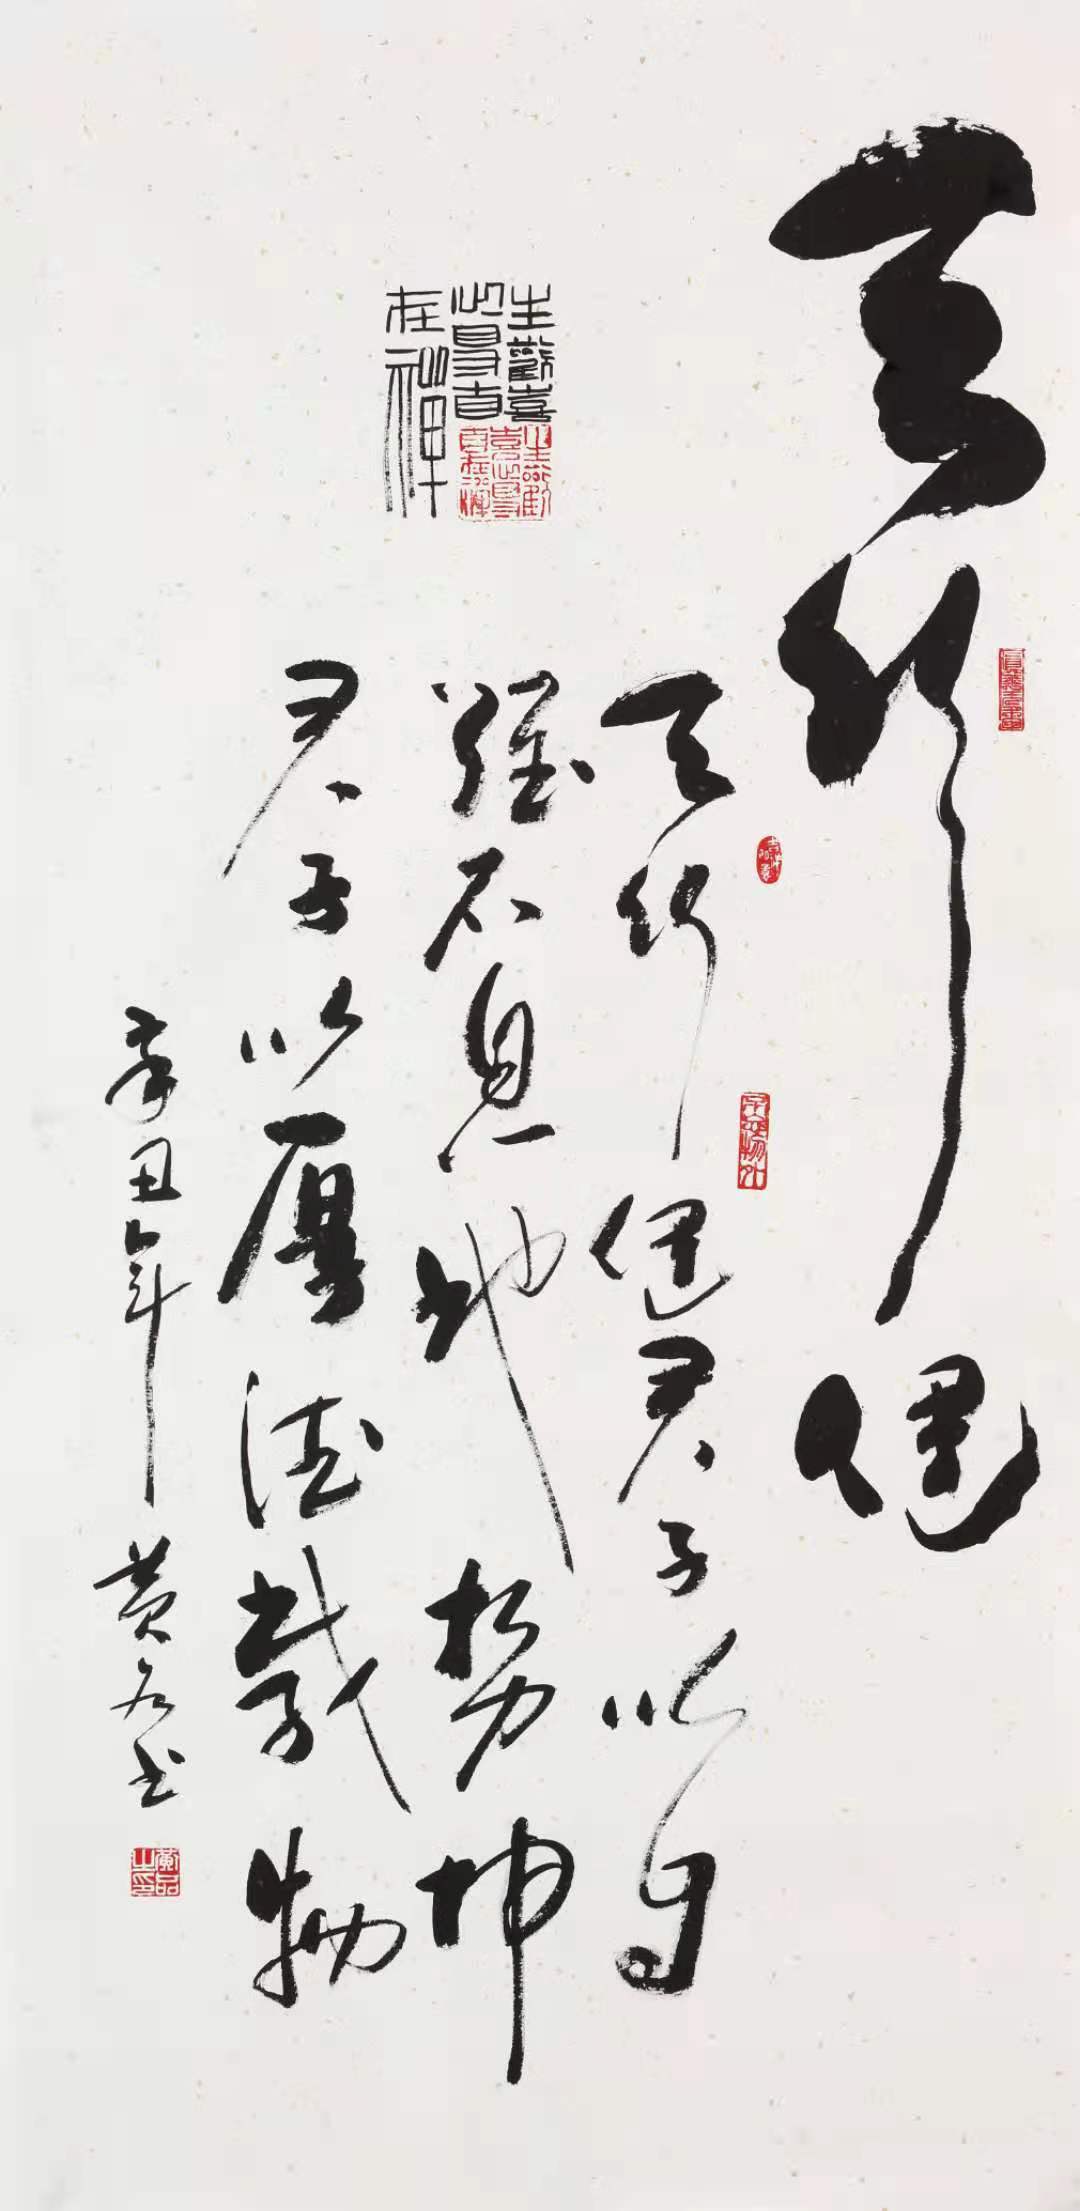 天行健
天行健君子以自
强不息地势坤
君子以厚德载物
辛丑年黄君书
生歡喜
心得自
在禅